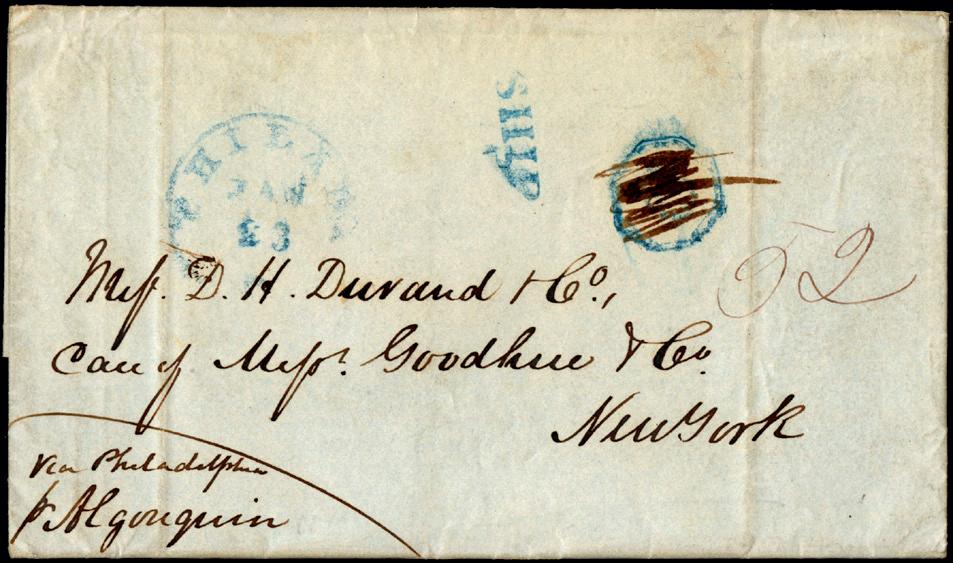 SHIP
PHILA
JAN
23
52
Mess. D. H. Durand & Co.,
Care of Messrs. Goodhue & Co.
New York
Via Philadelphia
pr Algonquin